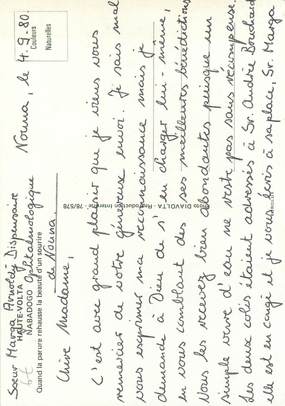 Nouna, le 4.9.80.
Couleurs
Naturelles
Soeur Marga Arnoldy Dispensaire
Ophtalmologique
de Nouna.
HAUTE-VOLTA
NABADOGO
Quand la parure rehausse la beauté d'un sourire
Photo DIAVOLTA - Reproduction Interdite - 78/578
Chère Madame,
C'est avec grand plaisir que je viens vous
remercier de votre généreux envoi. Je sais mal
vous exprimer ma reconnaissance mais je
demande à Dieu de s'en charger lui-même,
en vous comblant de ses meilleures bénédictions.
Vous les recevez bien abondantes puisque un
simple verre d'eau ne reste pas sans récompense.
Les deux colis étaient adressés à Sr. André Bouchaud
elle est en congé et je vous écris à sa place, Sr. Marga